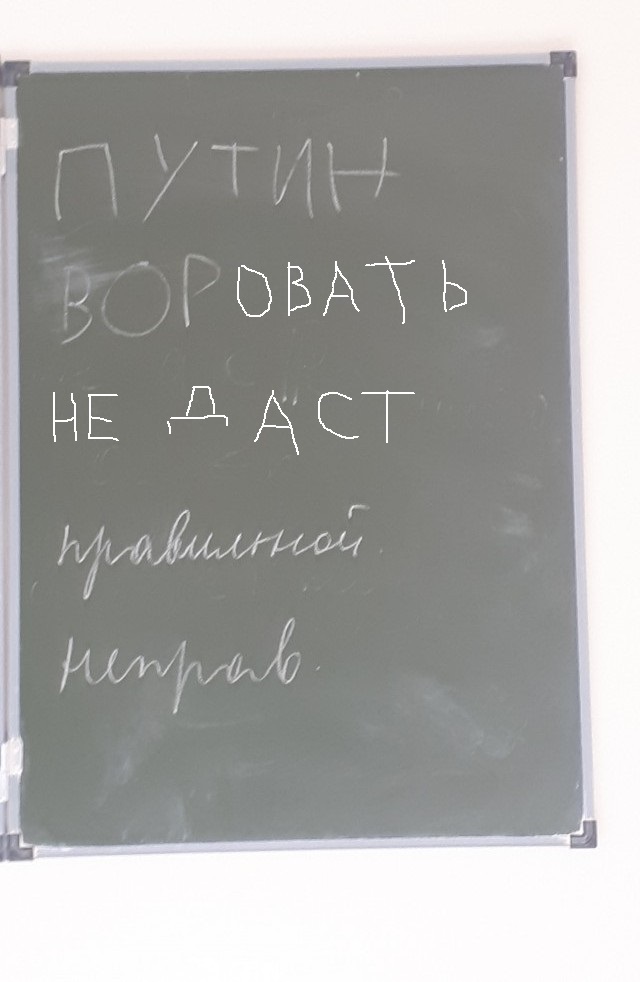 ПУТИН
ВОРОВАТЬ
НЕ ДАСТ
правильной
неправ.